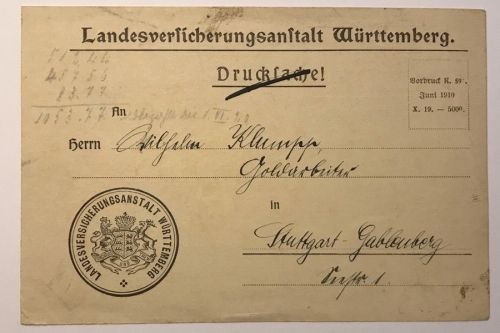 Landesversicherungsanstalt Württemberg.
Drucksache!
Vordruck K. 59
Juni 1910
X. 19. — 5000.
An
Herrn Wilhelm Klumpp,
Goldarbeiter
in
Stuttgart-Gablenberg
Seestr 1.
LANDESVERSICHERUNGSANSTALT WÜRTTEMBERG